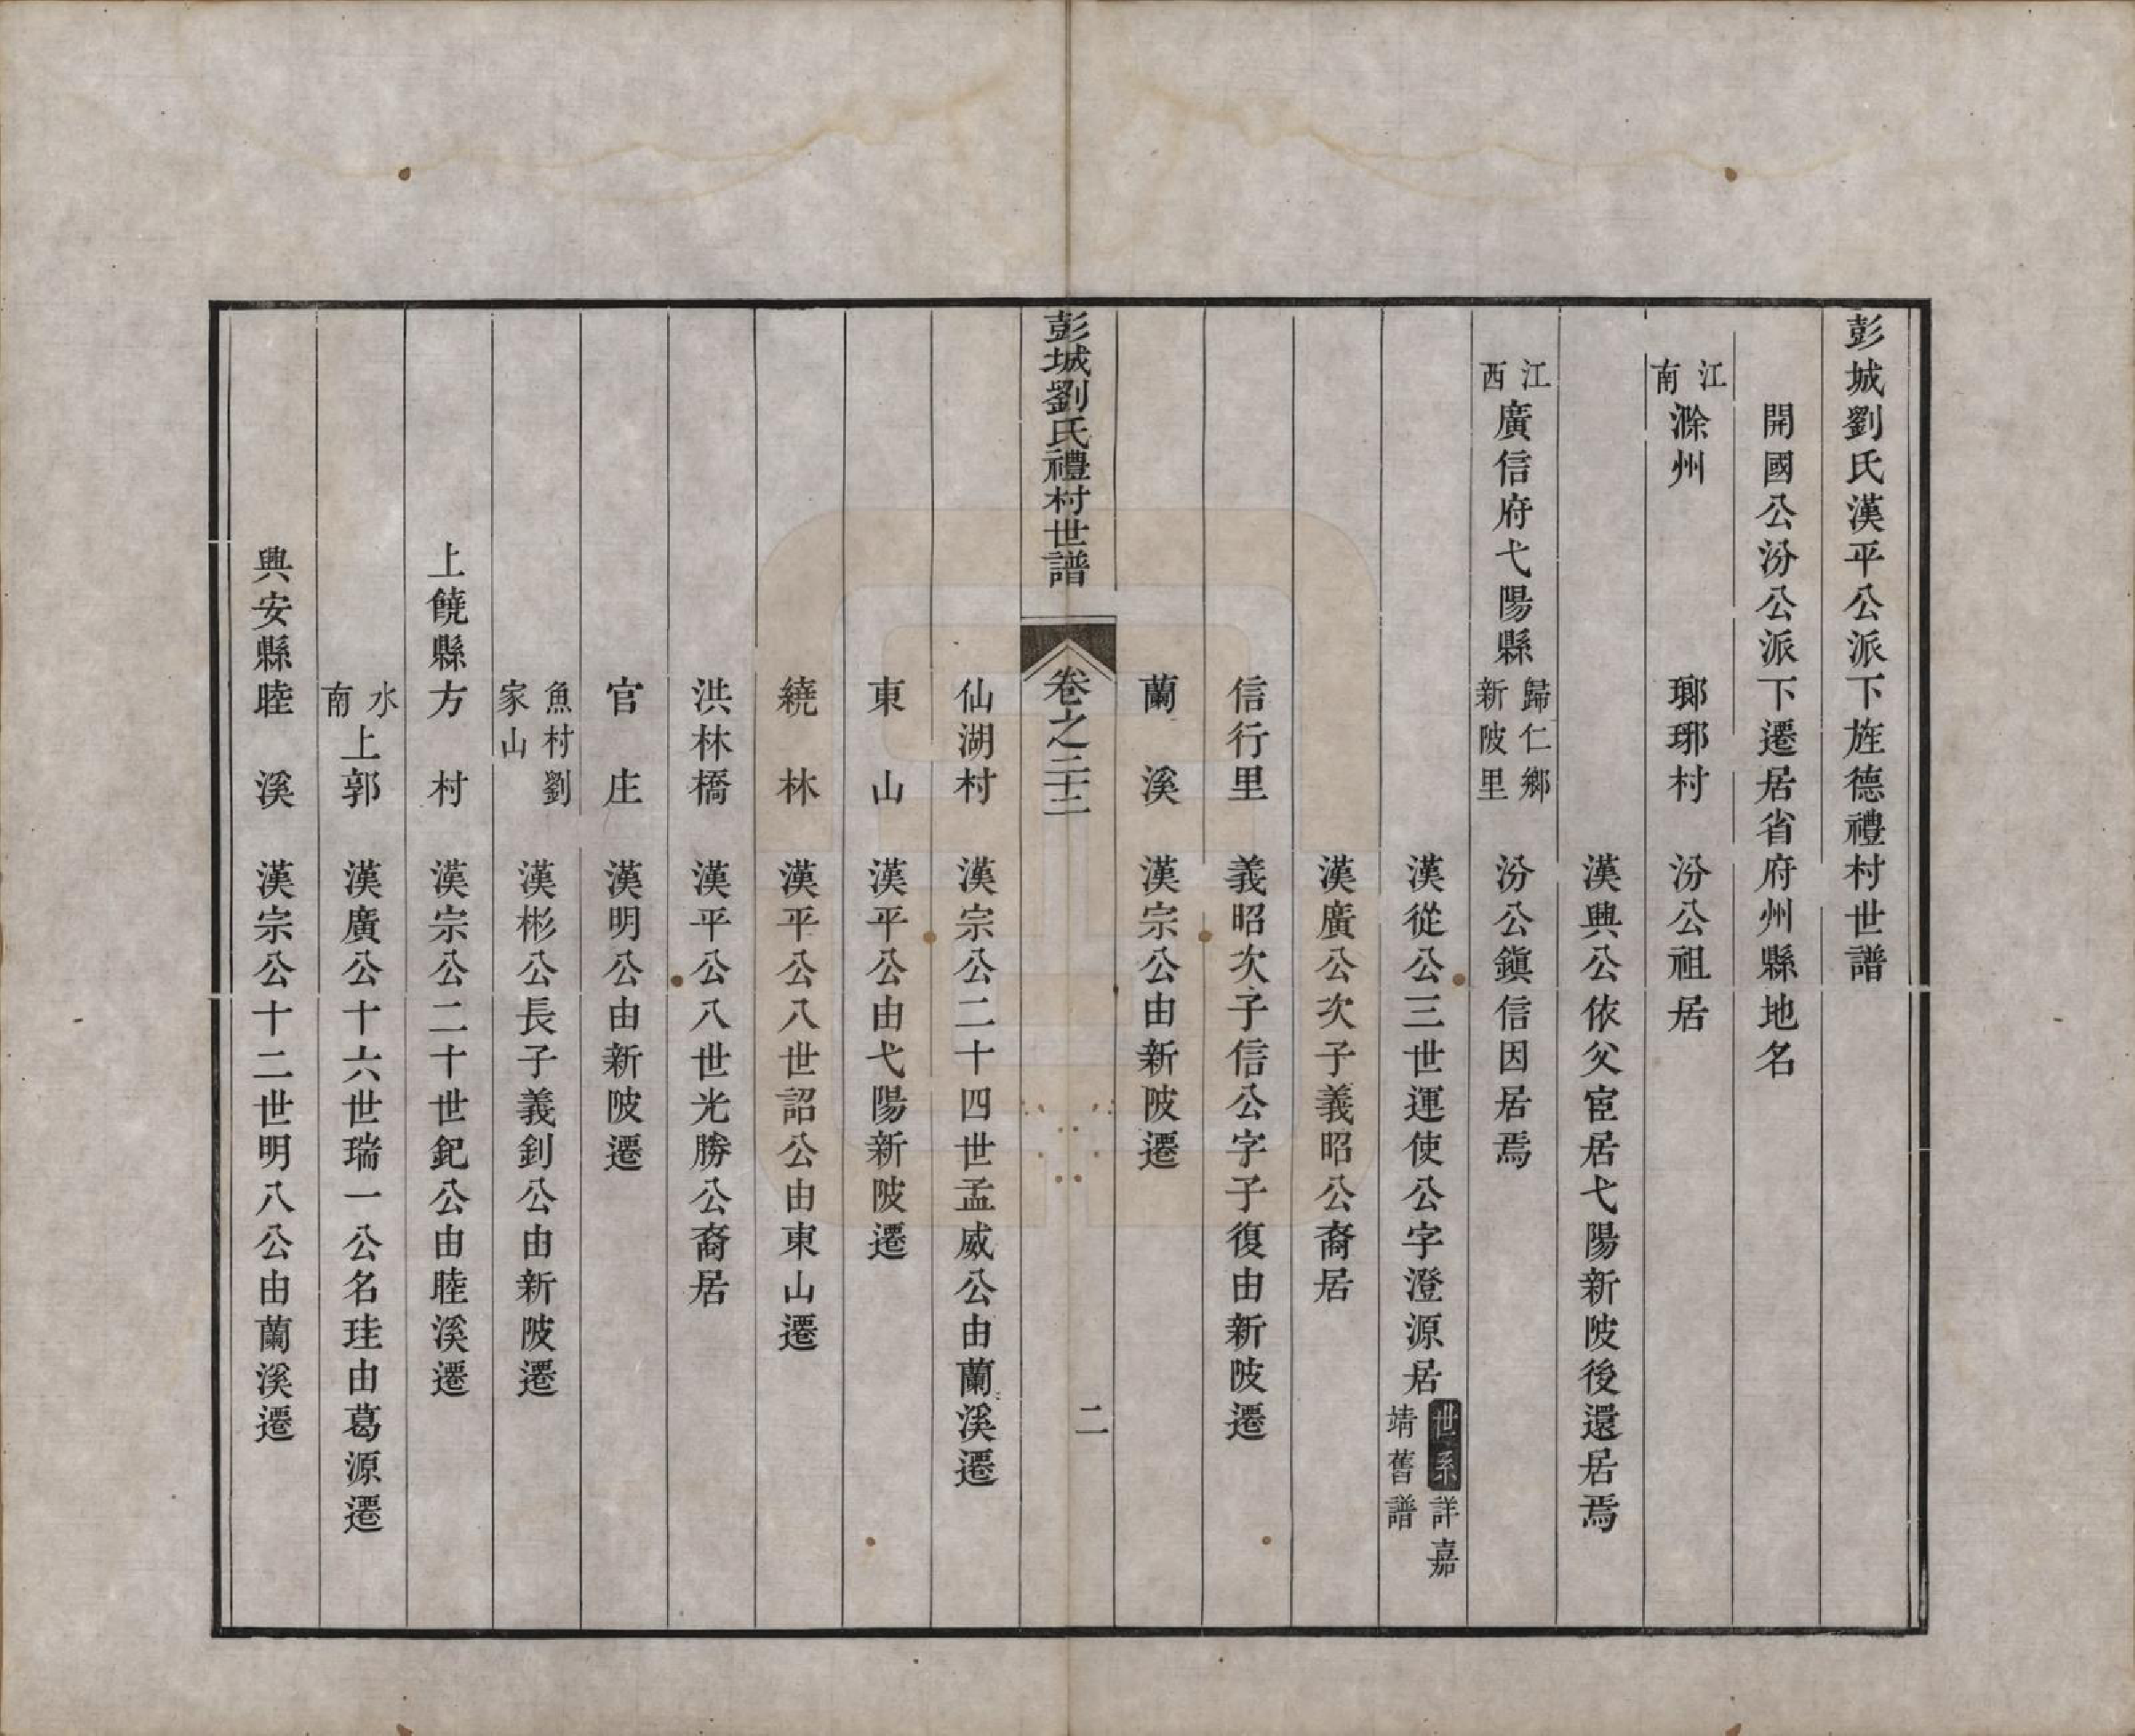 彭城劉氏漢平公派下旌德禮村世譜
開國公汾公派下遷居省府州縣地名
江南滁州 瑯琊村 汾公祖居
漢興公依父宦居弋陽新陂後還居焉
江西廣信府弋陽縣歸仁鄉新陂里 汾公鎭信因居焉
漢從公三世運使公字澄源居世系詳嘉靖舊譜
漢廣公次子義昭公裔居
信行里 義昭次子信公字子復由新陂遷
蘭溪 漢宗公由新陂遷
彭城劉氏禮村世譜 卷之二十二 二
仙湖村 漢宗公二十四世孟威公由蘭溪遷
東山 漢平公由弋陽新陂遷
繞林 漢平公八世詔公由東山遷
洪林橋 漢平公八世光勝公裔居
官庄 漢明公由新陂遷
魚村劉家山 漢彬公長子義釗公由新陂遷
上饒縣方村 漢宗公二十世鈀公由睦溪遷
水南上郭 漢廣公十六世瑞一公名珪由葛源遷
興安縣睦溪 漢宗公十二世明八公由蘭溪遷